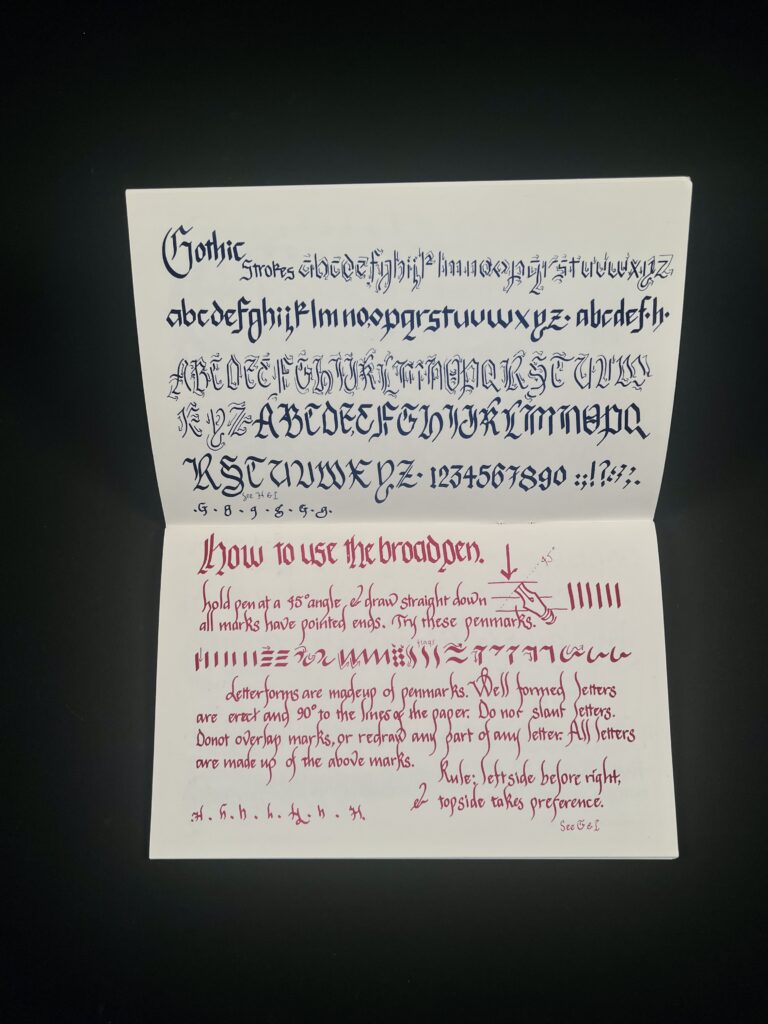 Gothic
Strokes abcdefghijklmnoopqrstuvwxyz
abcdefghijklmnoopqrstuvwxyz· abcdef·h·
ABCDEEFGHIJKLMNOPQRSTUVW
XYZ ABCDEEFGHIJKLMNOPQ
RSTUVWXYZ· 1234567890 :;!?
See H & I
·G·g·g·g·G·g·
How to use the broad pen.
45°
hold pen at a 45° angle, & draw straight down
all marks have pointed ends. Try these penmarks.
Letterforms are made up of penmarks. Well formed letters
are erect and 90° to the lines of the paper. Do not slant letters.
Donot overlap marks, or redraw any part of any letter. All letters
are made up of the above marks.
Rule; leftside before right,
& topside takes preference.
H·h·h·h·H·h·H.
See G & I